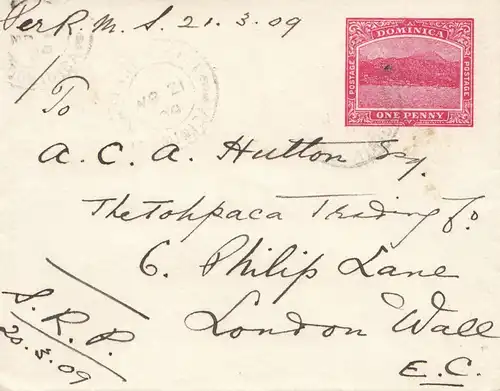 Per R.M.S. 21.3.09
DOMINICA
POSTAGE
POSTAGE
ONE PENNY
To
A. C. A. Hutton Esq.
The Tohpaca Trading Co
6. Philip Lane
London Wall
E.C.
S.R.P.
20.3.09